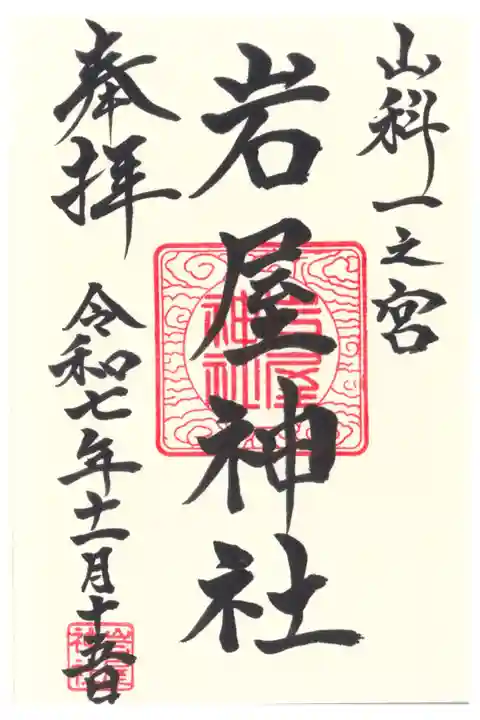 山科一之宮
岩屋神社
奉拝
令和七年十一月十五日
岩屋
神社